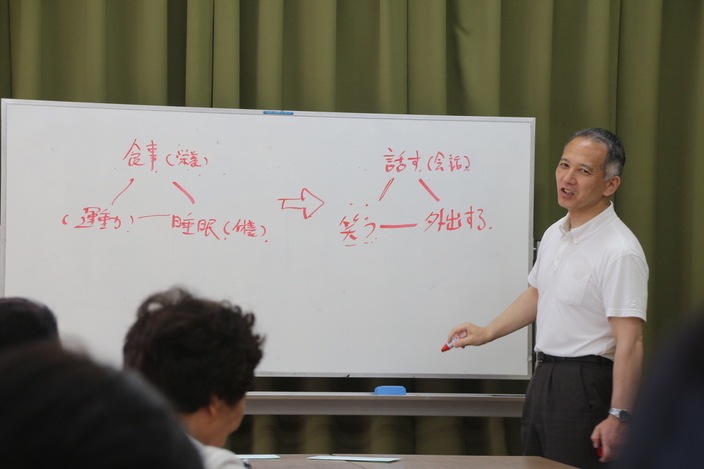 食事(栄養)
(運動)
睡眠(休養)
話す(会話)
笑う
外出する